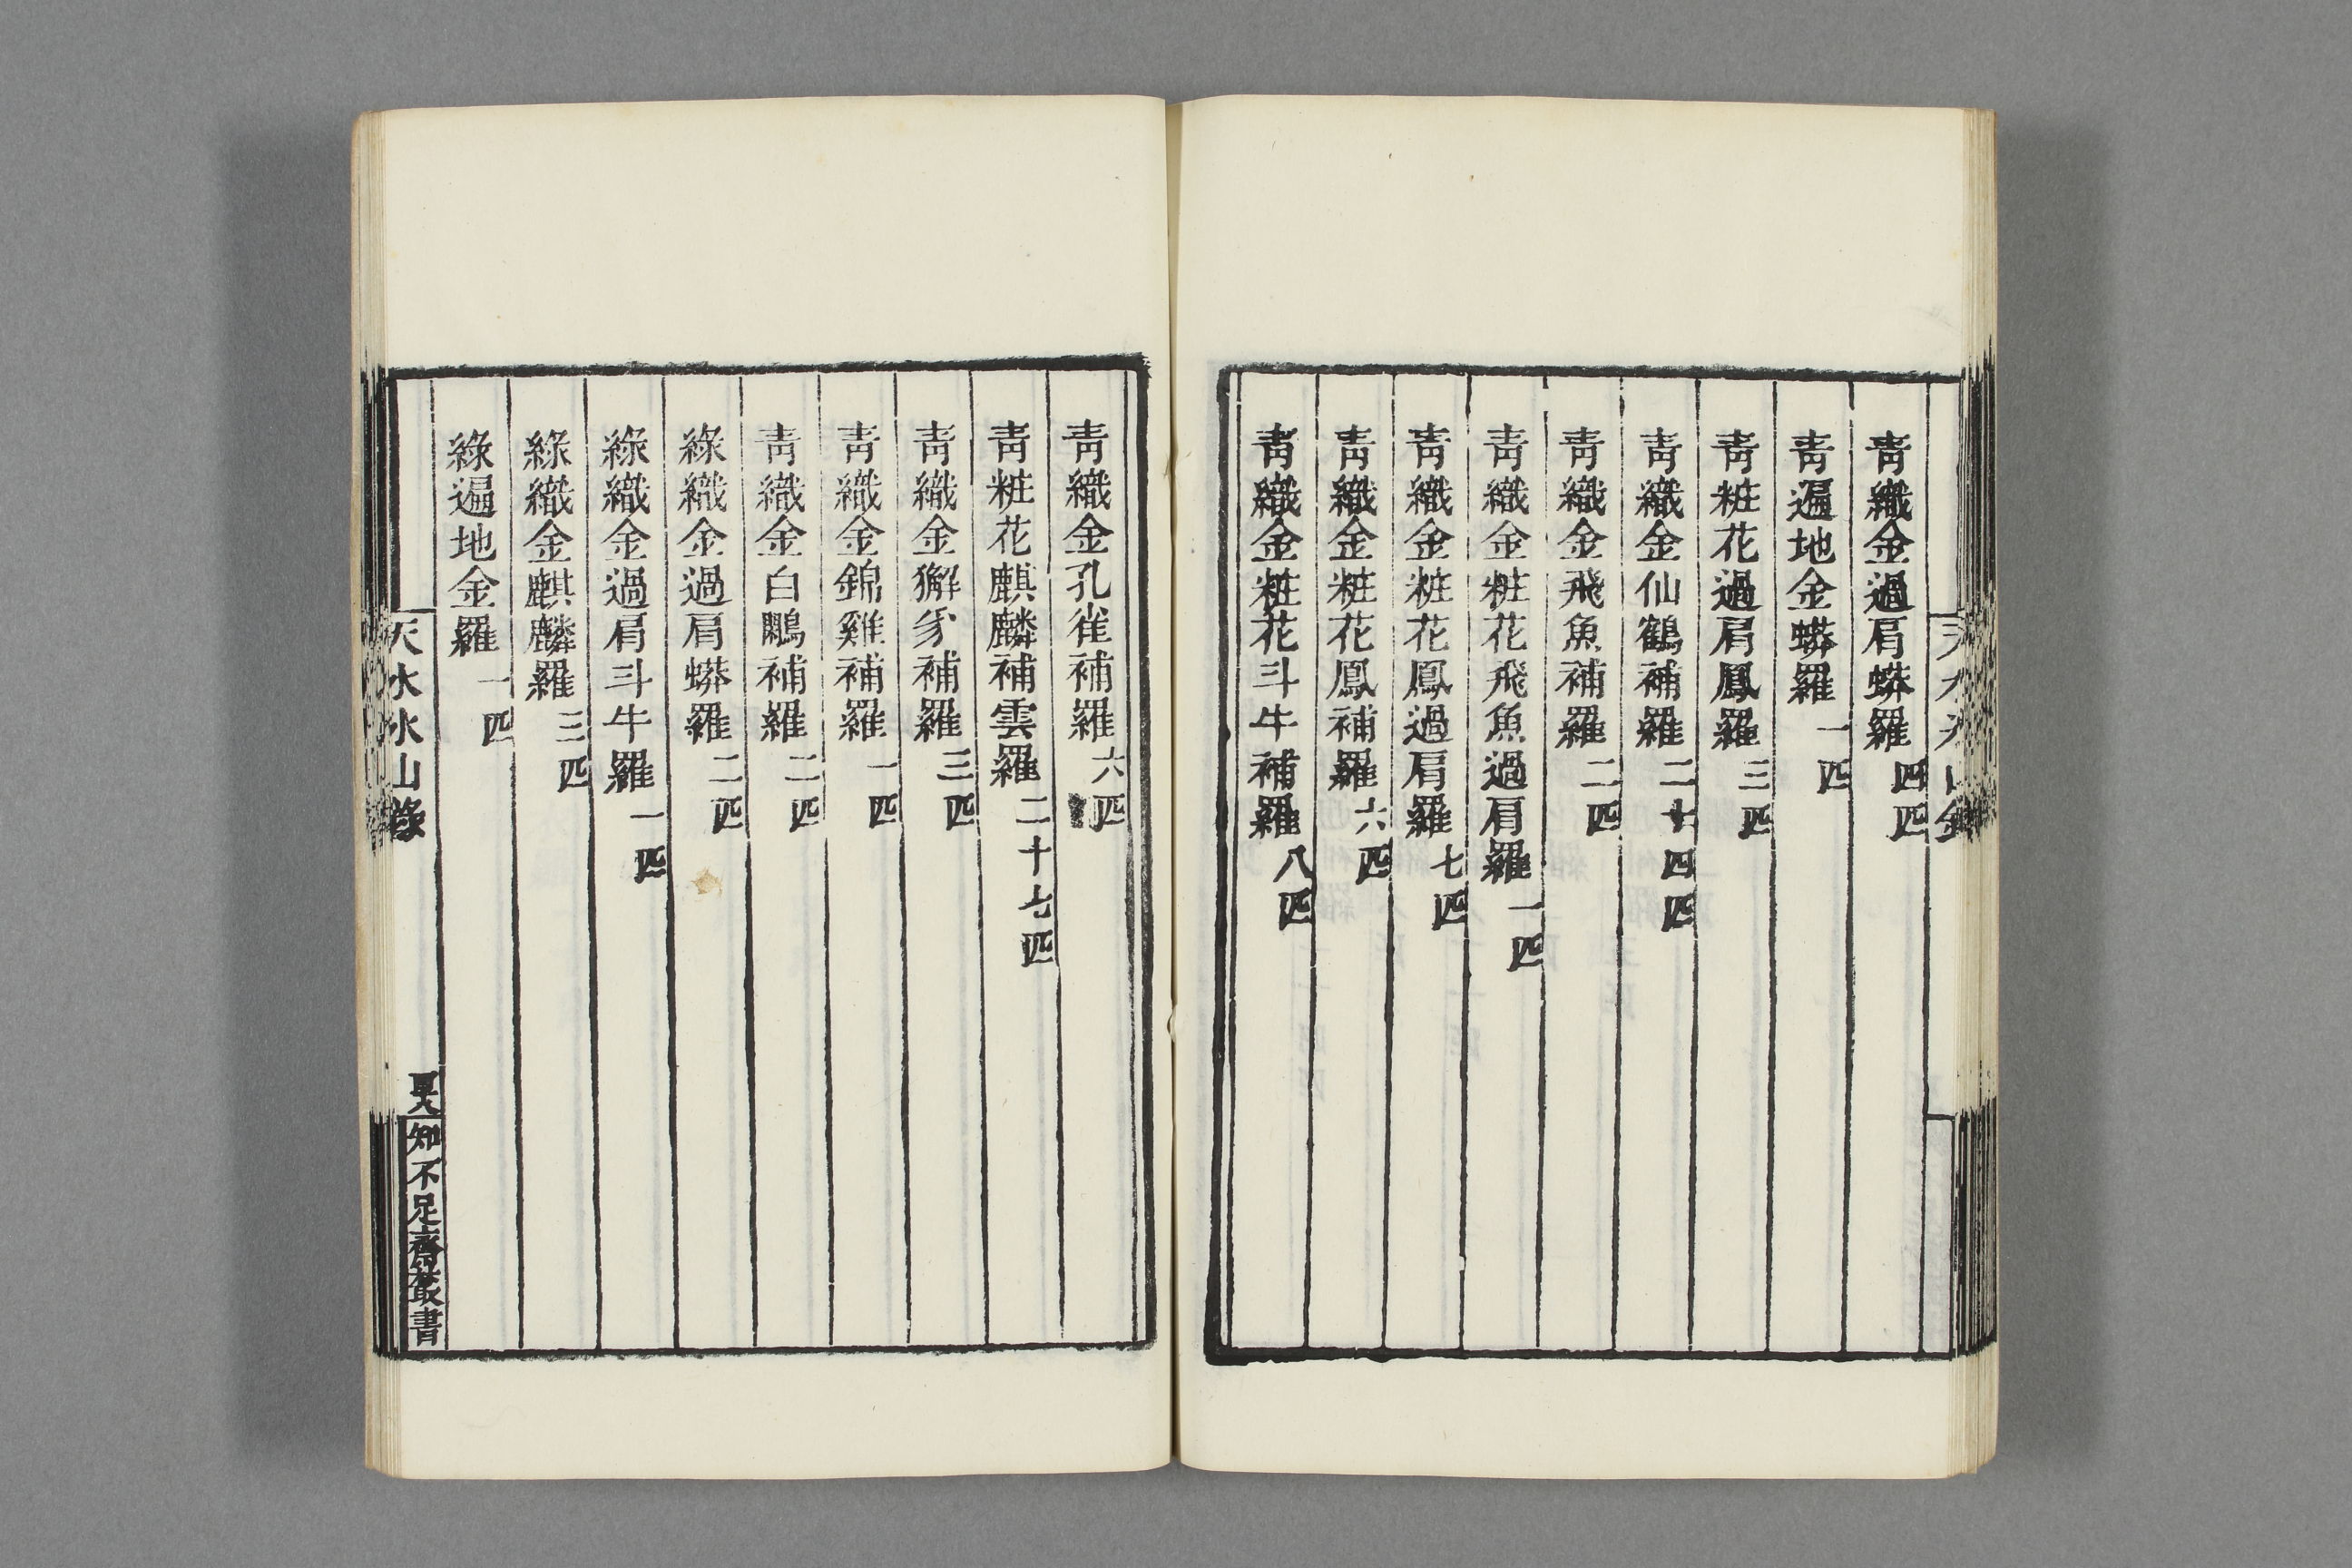 青織金過肩蟒羅四匹
青遍地金蟒羅一匹
青粧花過肩鳳羅三匹
青織金仙鶴補羅二十四匹
青織金飛魚補羅二匹
青織金粧花飛魚過肩羅一匹
青織金粧花鳳過肩羅七匹
青織金粧花鳳補羅六匹
青織金粧花斗牛補羅八匹
青織金孔雀補羅六匹
青粧花麒麟補雲羅二十七匹
青織金獬豸補羅三匹
青織金錦雞補羅一匹
青織金白鷴補羅二匹
綠織金過肩蟒羅二匹
綠織金過肩斗牛羅一匹
綠織金麒麟羅三匹
綠遍地金羅一匹
天水冰山錄
知不足齋叢書